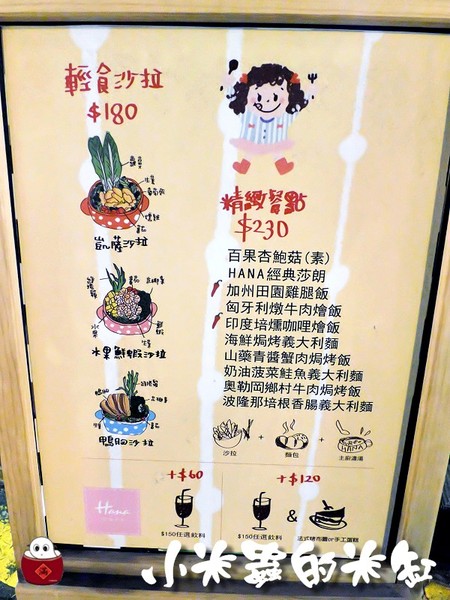 輕食沙拉
$180
凱薩沙拉
水果鮮蝦沙拉
水果
鴨胸沙拉
精緻餐點
$230
百果杏鮑菇(素)
HANA經典莎朗
加州田園雞腿飯
匈牙利燉牛肉燴飯
印度培燻咖哩燴飯
海鮮焗烤義大利麵
山藥青醬蟹肉焗烤飯
奶油菠菜鮭魚義大利麵
奧勒岡鄉村牛肉焗烤飯
波隆那培根香腸義大利麵
沙拉
+
麵包
+
主廚濃湯
HANA
+$60
$150任選飲料
+$120
$150任選飲料
&
法式烤布蕾or手工蛋糕
Hana
小米蟲的米缸